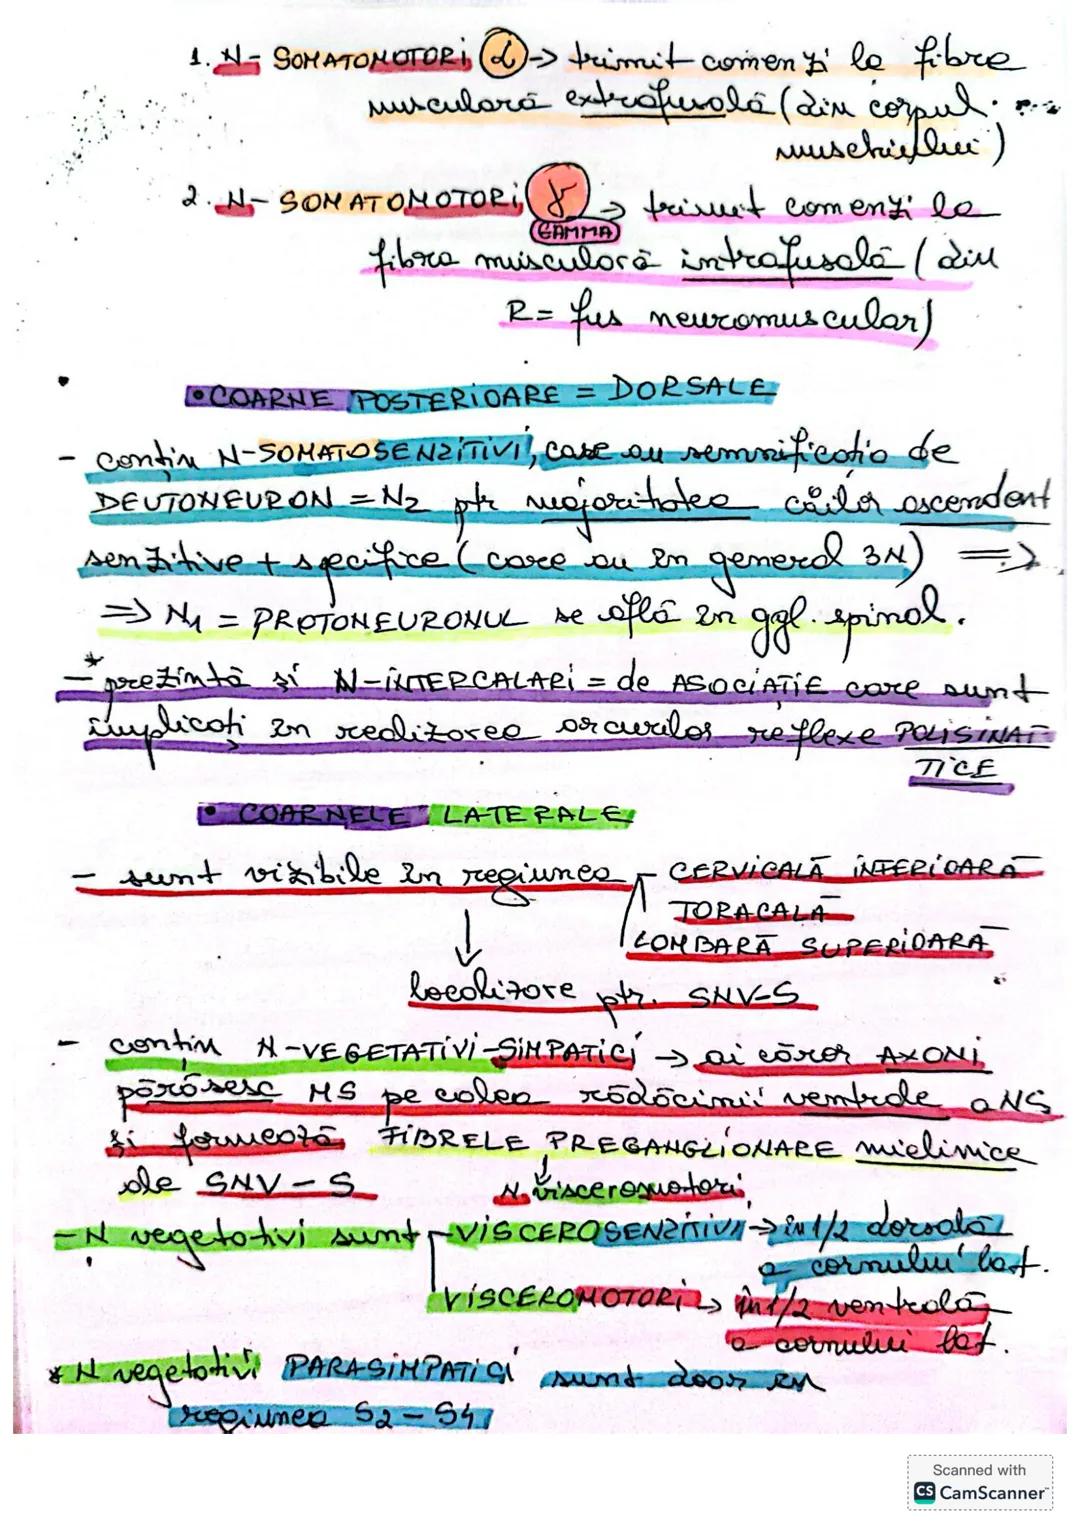 1. N- SOMATOMOTORI α → trimit comenzi la fibra
musculară extrafusală (din corpul
muschiului)
2. N- SOMATOMOTORI γ → trimit comenzi la
GAMMA
fibra musculară intrafusală (din
R= fus neuromuscular)
• COARNE POSTERIOARE = DORSALE
- conțin N-SOMATOSENZITIVI, care au semnificatia de
DEUTONEURON = N2 ptr majoritatea căilor ascendent
senzitive + specifice (care au în general 3N) =>
=> N1 = PROTONEURONUL se află în ggl. spinal.
*
- prezintă și N-INTERCALARI = de ASOCIAȚIE care sunt
implicați în realizarea arcurilor reflexe POLISINAP-
TICE
• COARNELE LATERALE
- sunt vizibile în regiunea CERVICALĂ INFERIOARĂ
TORACALĂ
LOMBARĂ SUPERIOARĂ
↓
localizare ptr. SNV-S
- conțin N-VEGETATIVI-SIMPATICI → ai căror AXONI
părăsesc MS pe calea rădăcinii ventrale a NS
și formează FIBRELE PREGANGLIONARE mielinice
ale SNV-S N. visceromotori
- N vegetativi sunt VISCEROSENZITIVI → în 1/2 dorsală
a cornului lat.
VISCEROMOTORI → în 1/2 ventrală
a cornului lat.
* N vegetativi PARASIMPATICI sunt doar în
regiunea S2-S4
Scanned with
CS CamScanner